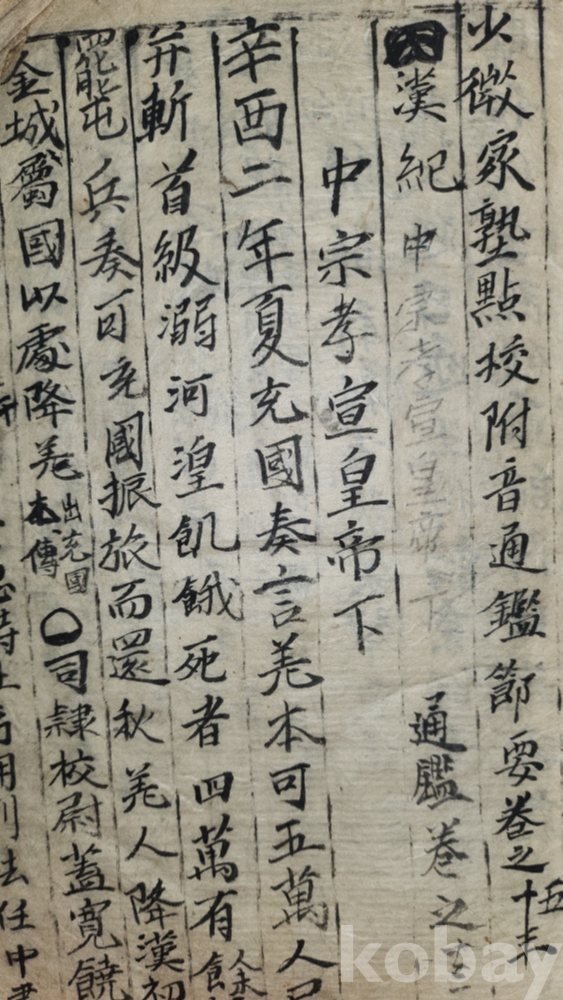 少微家塾點校附音通鑑節要卷之十五
漢紀 中宗孝宣皇帝下 通鑑卷之
中宗孝宣皇帝下
辛酉二年夏充國奏言羌本可五萬人
并斬首級溺河湟飢餓死者四萬有餘
罷屯兵奏可充國振旅而還秋羌人降漢初
金城屬國以處降羌 出充國本傳 〇司隷校尉蓋寬饒
用刑法任中書
kobay